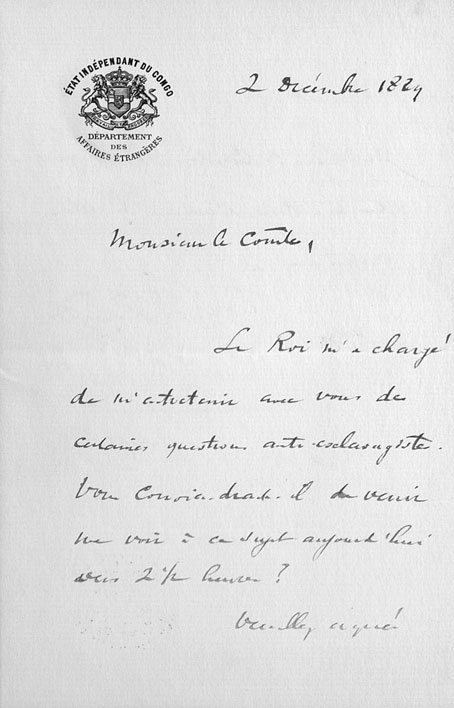 ÉTAT INDÉPENDANT DU CONGO
TRAVAIL ET PROGRÈS
DÉPARTEMENT
DES
AFFAIRES ÉTRANGÈRES
2 Décembre 1889
Monsieur le Comte,
Le Roi m'a chargé
de m'entretenir avec vous de
certaines questions anti-esclavagistes.
Vous conviendrait-il de venir
me voir à ce sujet aujourd'hui
vers 2 1/2 heures ?
Veuillez agréer